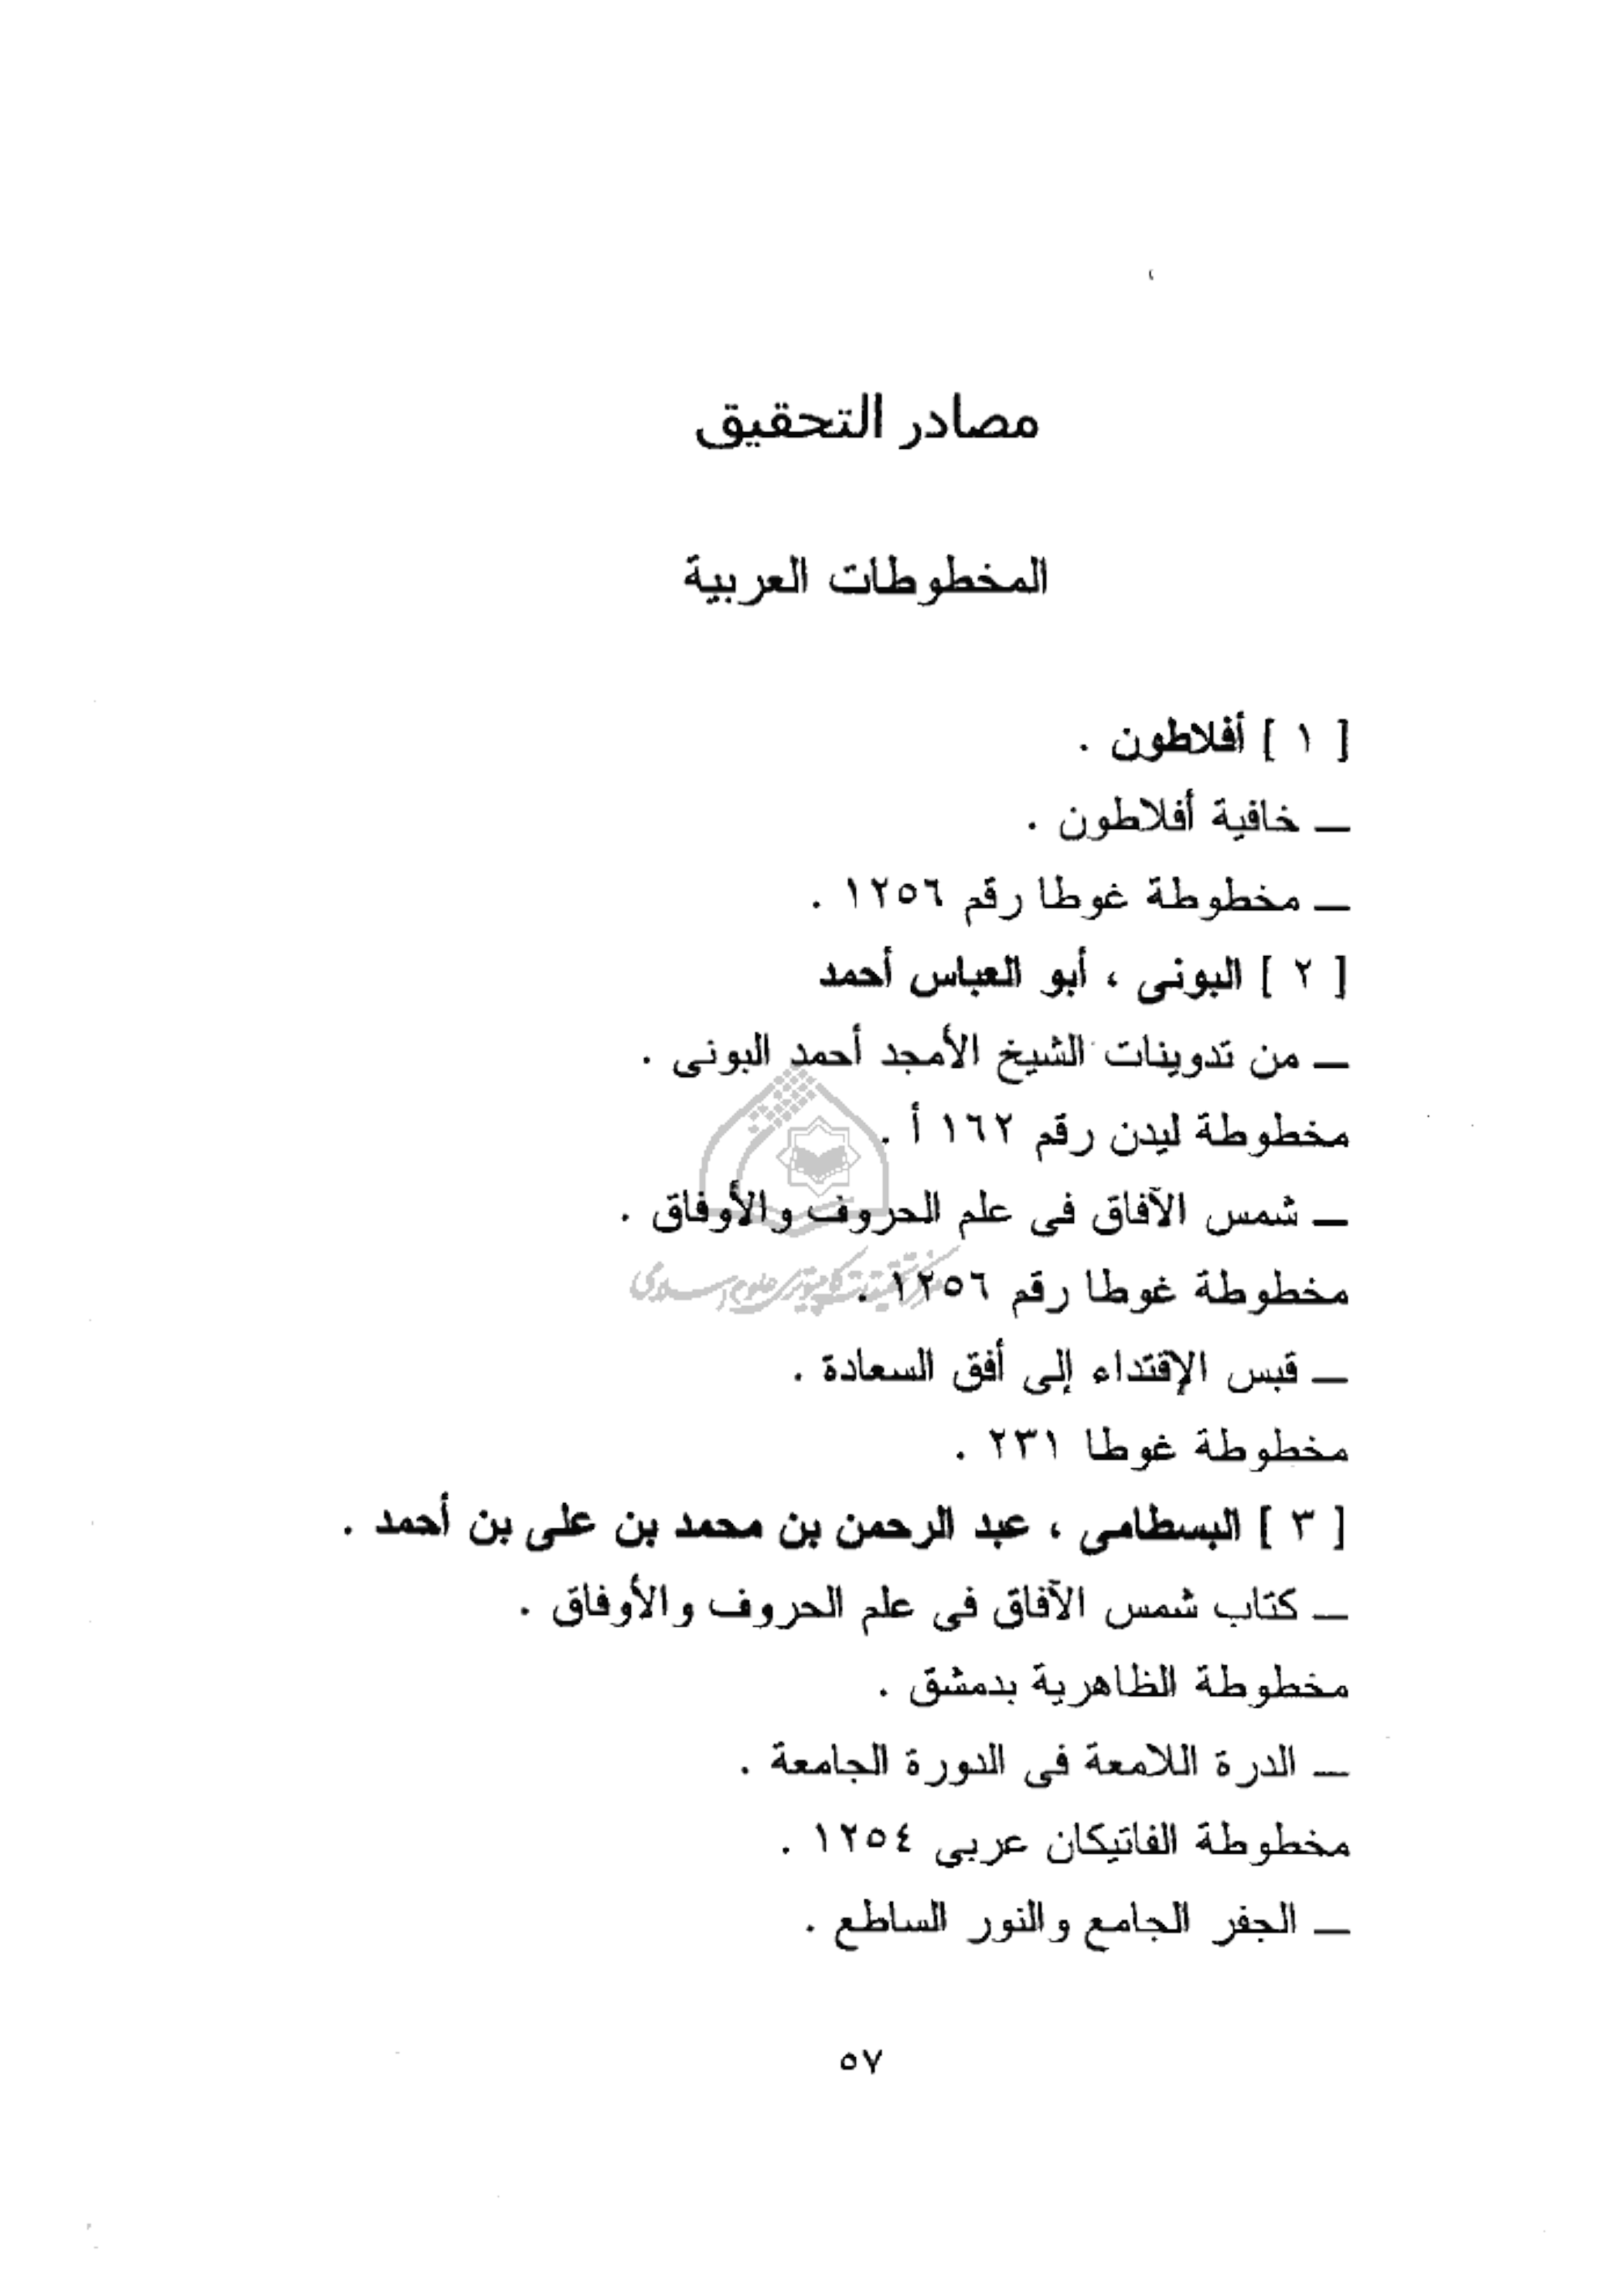 مصادر التحقيق
المخطوطات العربية
[ ١ ] أفلاطون .
ــ خافية أفلاطون .
ــ مخطوطة غوطا رقم ١٢٥٦ .
[ ٢ ] البونى ، أبو العباس أحمد
ــ من تدوينات الشيخ الأمجد أحمد البونى .
مخطوطة ليدن رقم ١٦٢ أ .
ــ شمس الآفاق فى علم الحروف والأوفاق .
مخطوطة غوطا رقم ١٢٥٦ .
ــ قبس الإقتداء إلى أفق السعادة .
مخطوطة غوطا ٢٣١ .
[ ٣ ] البسطامى ، عبد الرحمن بن محمد بن على بن أحمد .
ــ كتاب شمس الآفاق فى علم الحروف والأوفاق .
مخطوطة الظاهرية بدمشق .
ــ الدرة اللامعة فى الدورة الجامعة .
مخطوطة الفاتيكان عربى ١٢٥٤ .
ــ الجفر الجامع والنور الساطع .
٥٧